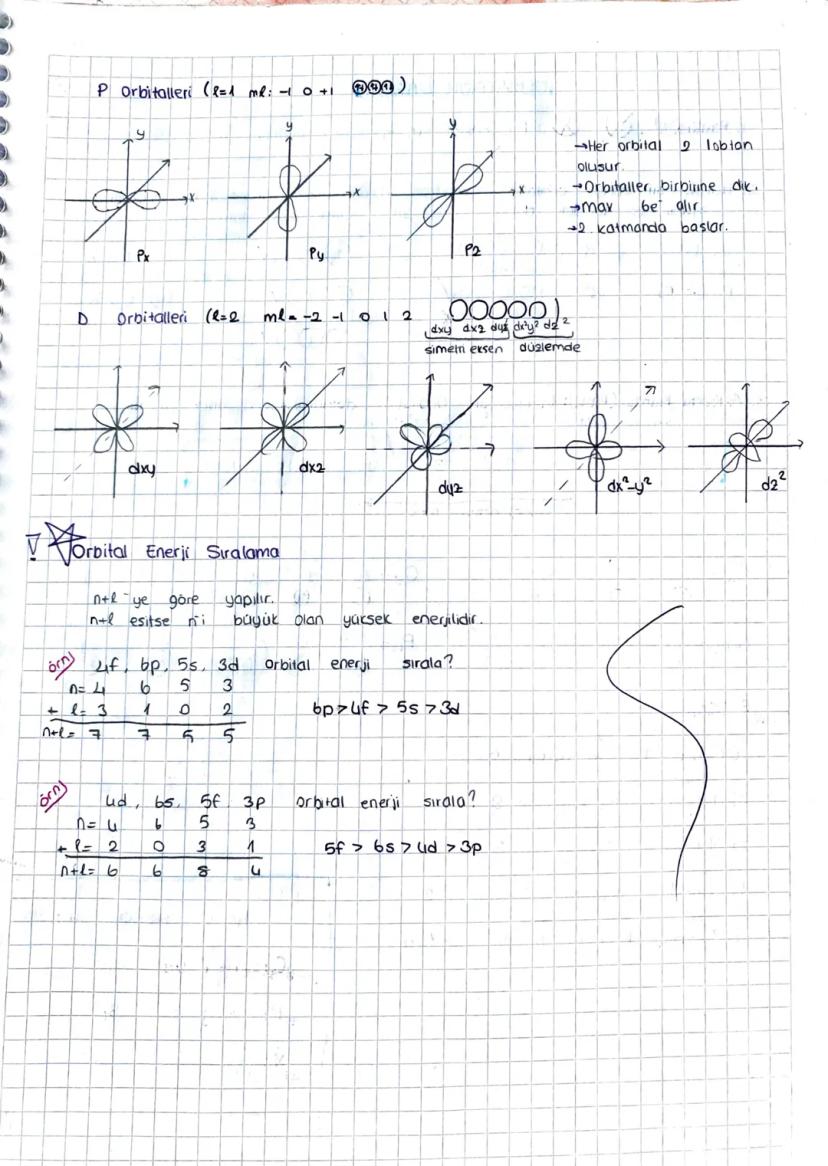 P Orbitalleri (l=1 ml: -1 0 +1 )
y y y
→Her orbital 2 lobtan
oluşur.
x x x
→Orbitaller birbirine dik.
→max 6e⁻ alır
→2. katmanda başlar.
Px Py Pz
D Orbitalleri (l=2 ml = -2 -1 0 1 2 OOOOO)
dxy dxz dyz dx²y² dz²
simetri eksen düzlemde
dxy dxz dyz dx²-y² dz²
! Orbital Enerji Sıralama
n+l 'ye göre yapılır.
n+l eşitse n'i büyük olan yüksek enerjilidir.
örn) 4f, 6p, 5s, 3d orbital enerji sırala?
n= 4 6 5 3
+ l= 3 1 0 2 6p>4f > 5s >3d
n+l = 7 7 5 5
örn) 4d, 6s, 5f, 3p orbital enerji sırala?
n= 4 6 5 3
+ l= 2 0 3 1 5f > 6s > 4d > 3p
n+l= 6 6 8 4